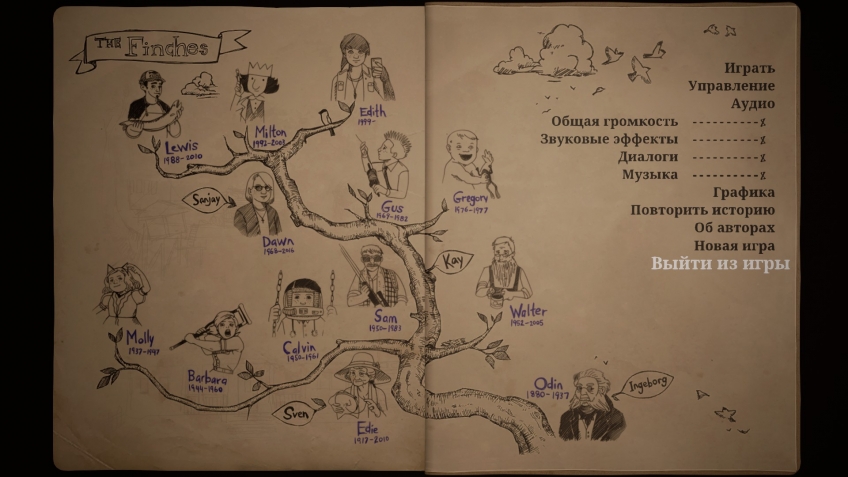 THE Finches
Edith
1999-
Lewis
1988-2010
Milton
1992-2003
Gus
1969-1982
Gregory
1976-1977
Sanjay
Dawn
1968-2016
Kay
Sam
1950-1983
Walter
1952-2005
Molly
1937-1947
Barbara
1944-1960
Calvin
1950-1961
Sven
Edie
1917-2010
Odin
1880-1937
Ingeborg
Играть
Управление
Аудио
Общая громкость
Звуковые эффекты
Диалоги
Музыка
Графика
Повторить историю
Об авторах
Новая игра
Выйти из игры